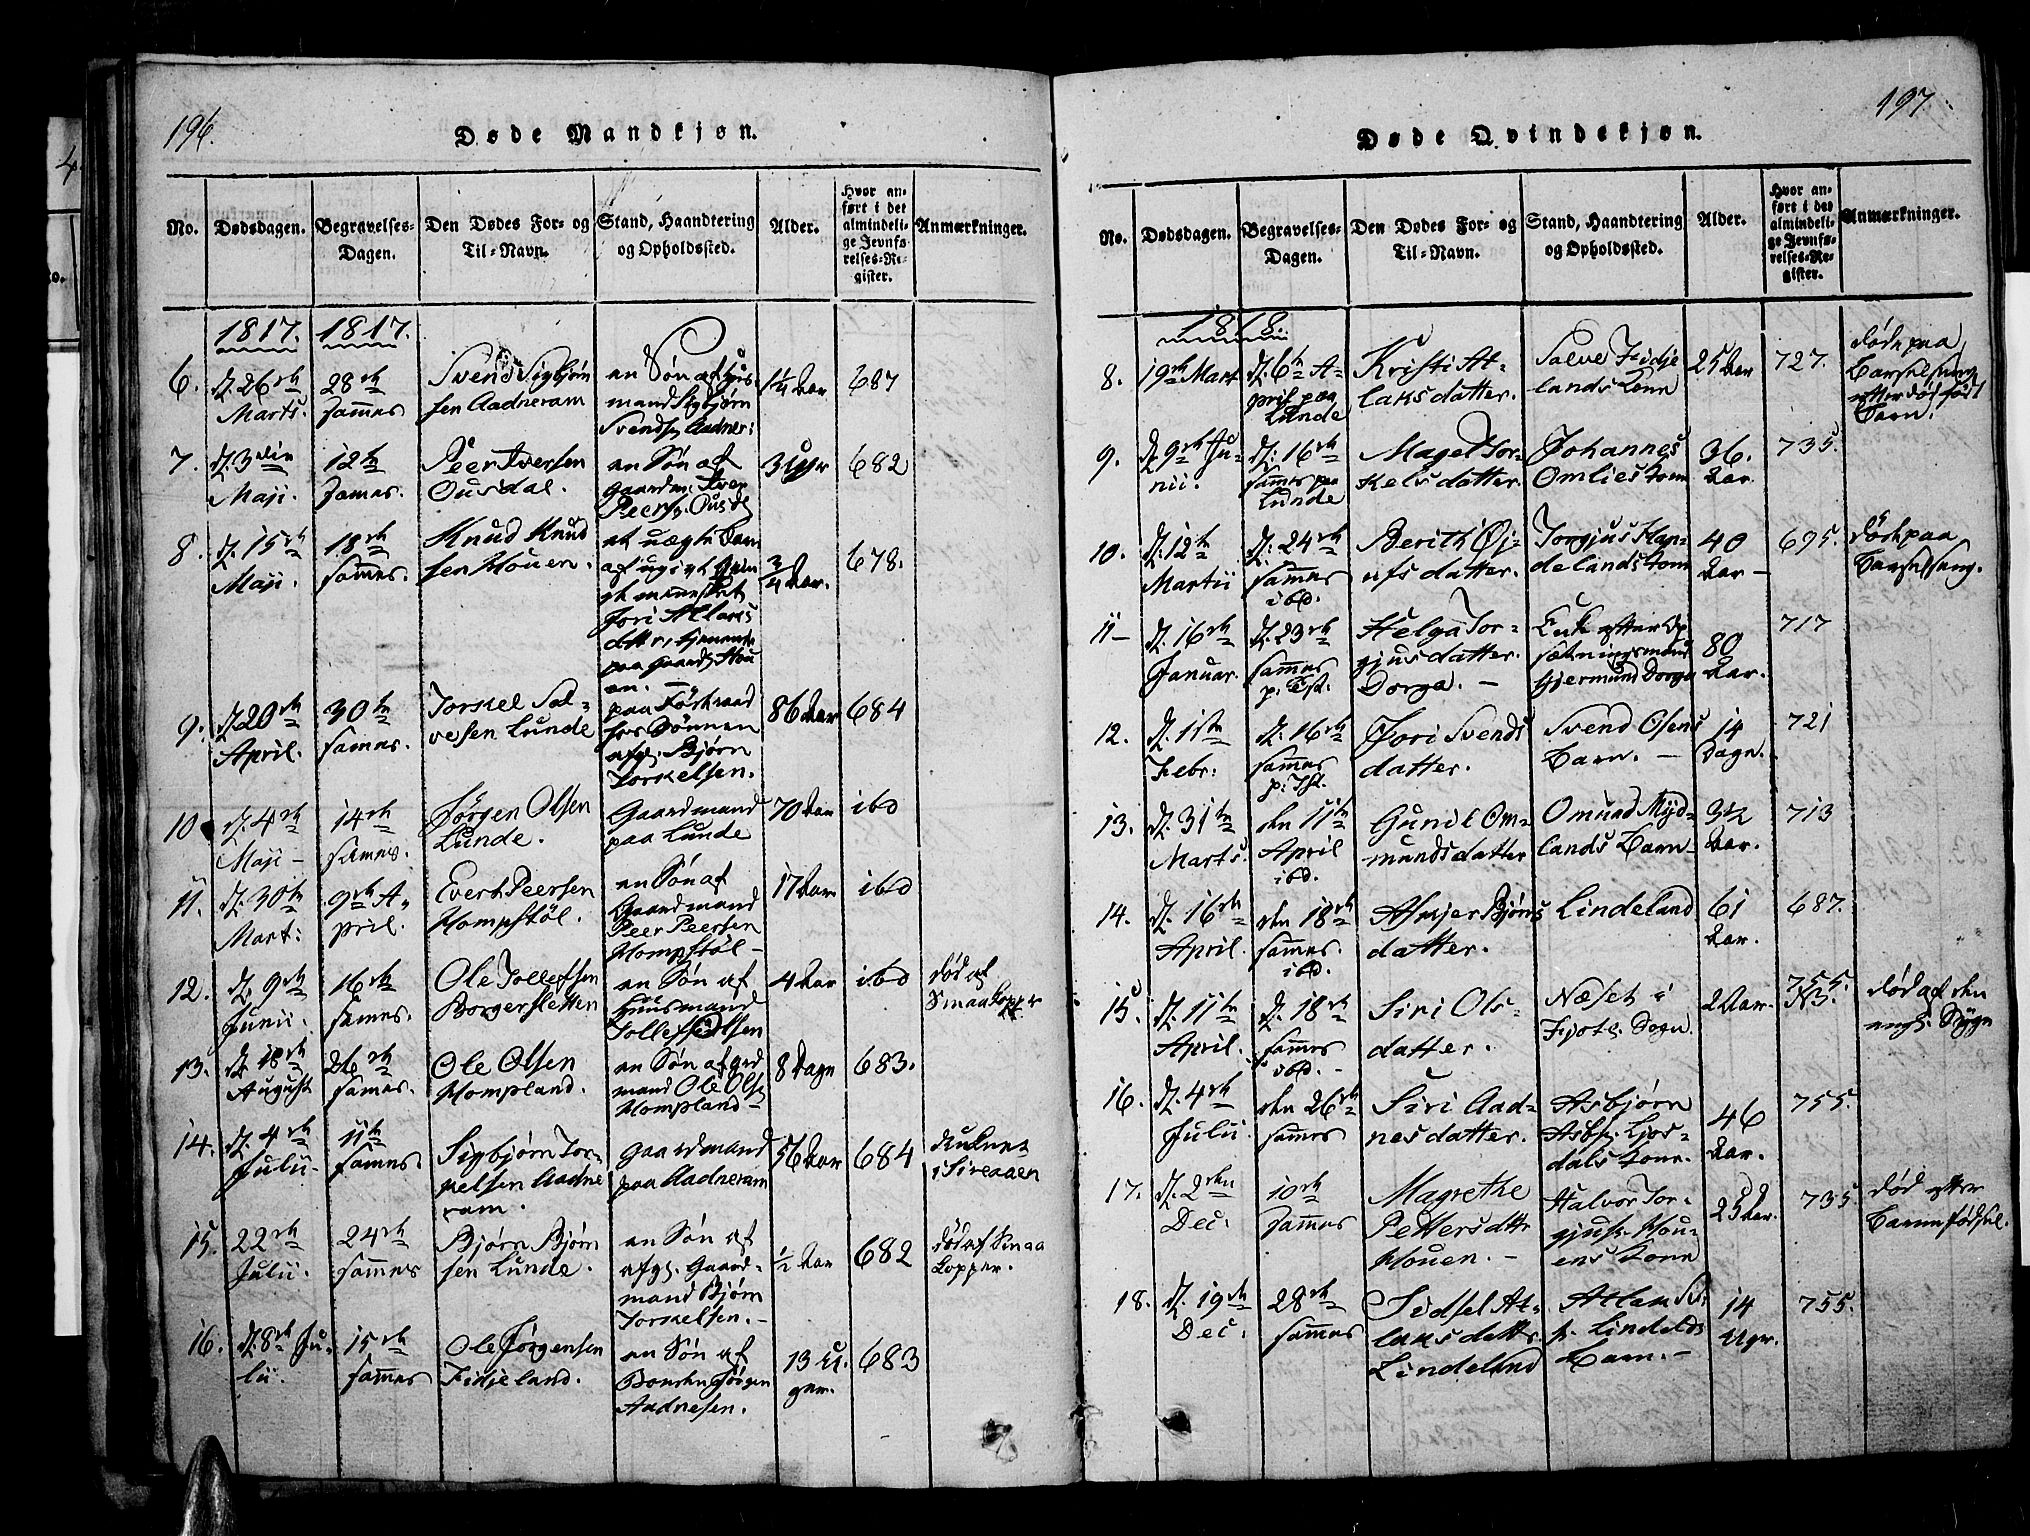 196.
Døde Mandkjøn.
No. Dødsdagen. Begravelses-Dagen. Den Dødes For- og Til-Navn. Stand, Haandtering og Opholdssted. Alder. Hvor anført i det almindelige Jevnførelses-Register. Anmærkninger.
1817. 1817.
6. d. 26de Marts. 28de sammes Svend Sigbjørnsen Aadneram en Søn af Huusmand Sigbjørn Svends. Aadner: 1¼ Aar 687
7. d. 3die Maji. 12te sammes. Peer Iversen Ousdal. en Søn af Gaardm. Iver Peers. Ousd. 3 Uger 682
8. d. 15de Maji. 18de sammes. Knud Knudsen Houen. et uægte Barn af ugivt Jori Atlaks datter, tjenende paa Gaard Houen. ¾ Aar. 678.
9. d. 20de April. 30te sammes. Torkel Salvesen Lunde paa Føderaad hos Sønnen afg. Bjørn Torkelsen. 86 Aar 684
10. d. 4de Maji 14de sammes. Jørgen Olsen Lunde. Gaardmand paa Lunde 70 Aar ibd
11. d. 30te Mart: 9de April. Evert Peersen Hompstøl. en Søn af Gaardmand Peer Peersen Hompstøl 17 Aar ibd
12. d. 9de Junii. 16de sammes. Ole Tollefsen Borgersletten en Søn af Huusmand Tollef Olsen 4 Aar ibd død af Smaakopper
13. d. 18de August 26de sammes. Ole Olsen Hompland. en Søn af grdmand Ole Ols. Hompland 8 Dage 683.
14. d. 4de Julii 11te sammes Sigbjørn Torkelsen Aadneram. Gaardmand paa Aadneram 56 Aar 684 druknet i Sireaaen
15. 22de Julii. 24de sammes Bjørn Bjørnsen Lunde. en Søn af afg. Gaardmand Bjørn Torkelsen. ½ Aar 682 død af Smaakopper.
16. d. 8de Julii. 15de sammes Ole Jørgensen Fidjeland. en Søn af Bonden Jørgen Aadnesen. 13 Uger. 683
197.
Døde Qvindekjøn.
No. Dødsdagen. Begravelses-Dagen. Den Dødes For- og Til-Navn. Stand, Haandtering og Opholdssted. Alder. Hvor anført i det almindelige Jevnførelses-Register. Anmærkninger.
1818.
8. 19de Mart d. 6te April paa Lunde Kristi Atlaksdatter. Salve Fidjelands Kone 25 Aar 727. døde paa Barselseng efter dødfødt Barn.
9. d. 9de Junii. d. 16de sammes paa Lunde Magel Torkelsdatter. Johannes Omlies Kone 36. Aar. 735.
10. d. 12te Martii d. 24de sammes ibd. Berith Øjufsdatter. Torgjus Haudelands Kone 40 Aar 695. døde paa Barselseng.
11 d. 16de Januar. d. 23de sammes Helga Torgjusdatter Dorga. Enke efter Gjermund Dorga 80 Aar. 717
12. d. 1ste Febr: d. 16de sammes Jori Svendsdatter. Svend Olsens Barn. 14 Dage. 721
13. d. 31te Marts. den 11te April ibd. Gunil Ommundsdatter Omund Mydlands Barn 3½ Aar. 713
14. d. 16de April. den 18de sammes. ibd. Askjer Bjørnsdatter. Lindeland 61 Aar. 687.
15. d. 11te April. d. 18de sammes ibd. Siri Olsdatter. Næset i Fjote Sogn. 2 Aar. 755. NB. død af den eng. Syge
16. d. 4de Julii. den 26de sammes Siri Aadnesdatter. Asbjørn Asbj. Ljosdals Kone. 46 Aar. 755.
17. d. 2den Dec. 10de sammes Magrethe Pettersdatt. Houen. Halvor Torgjus. Houens Kone 25 Aar. 735 død efter Barnefødsel.
18. d. 19de Dec. 28de sammes Sidsel Atlaksdatt. Lindeland Lindelds Barn. 14 Uger. 755.